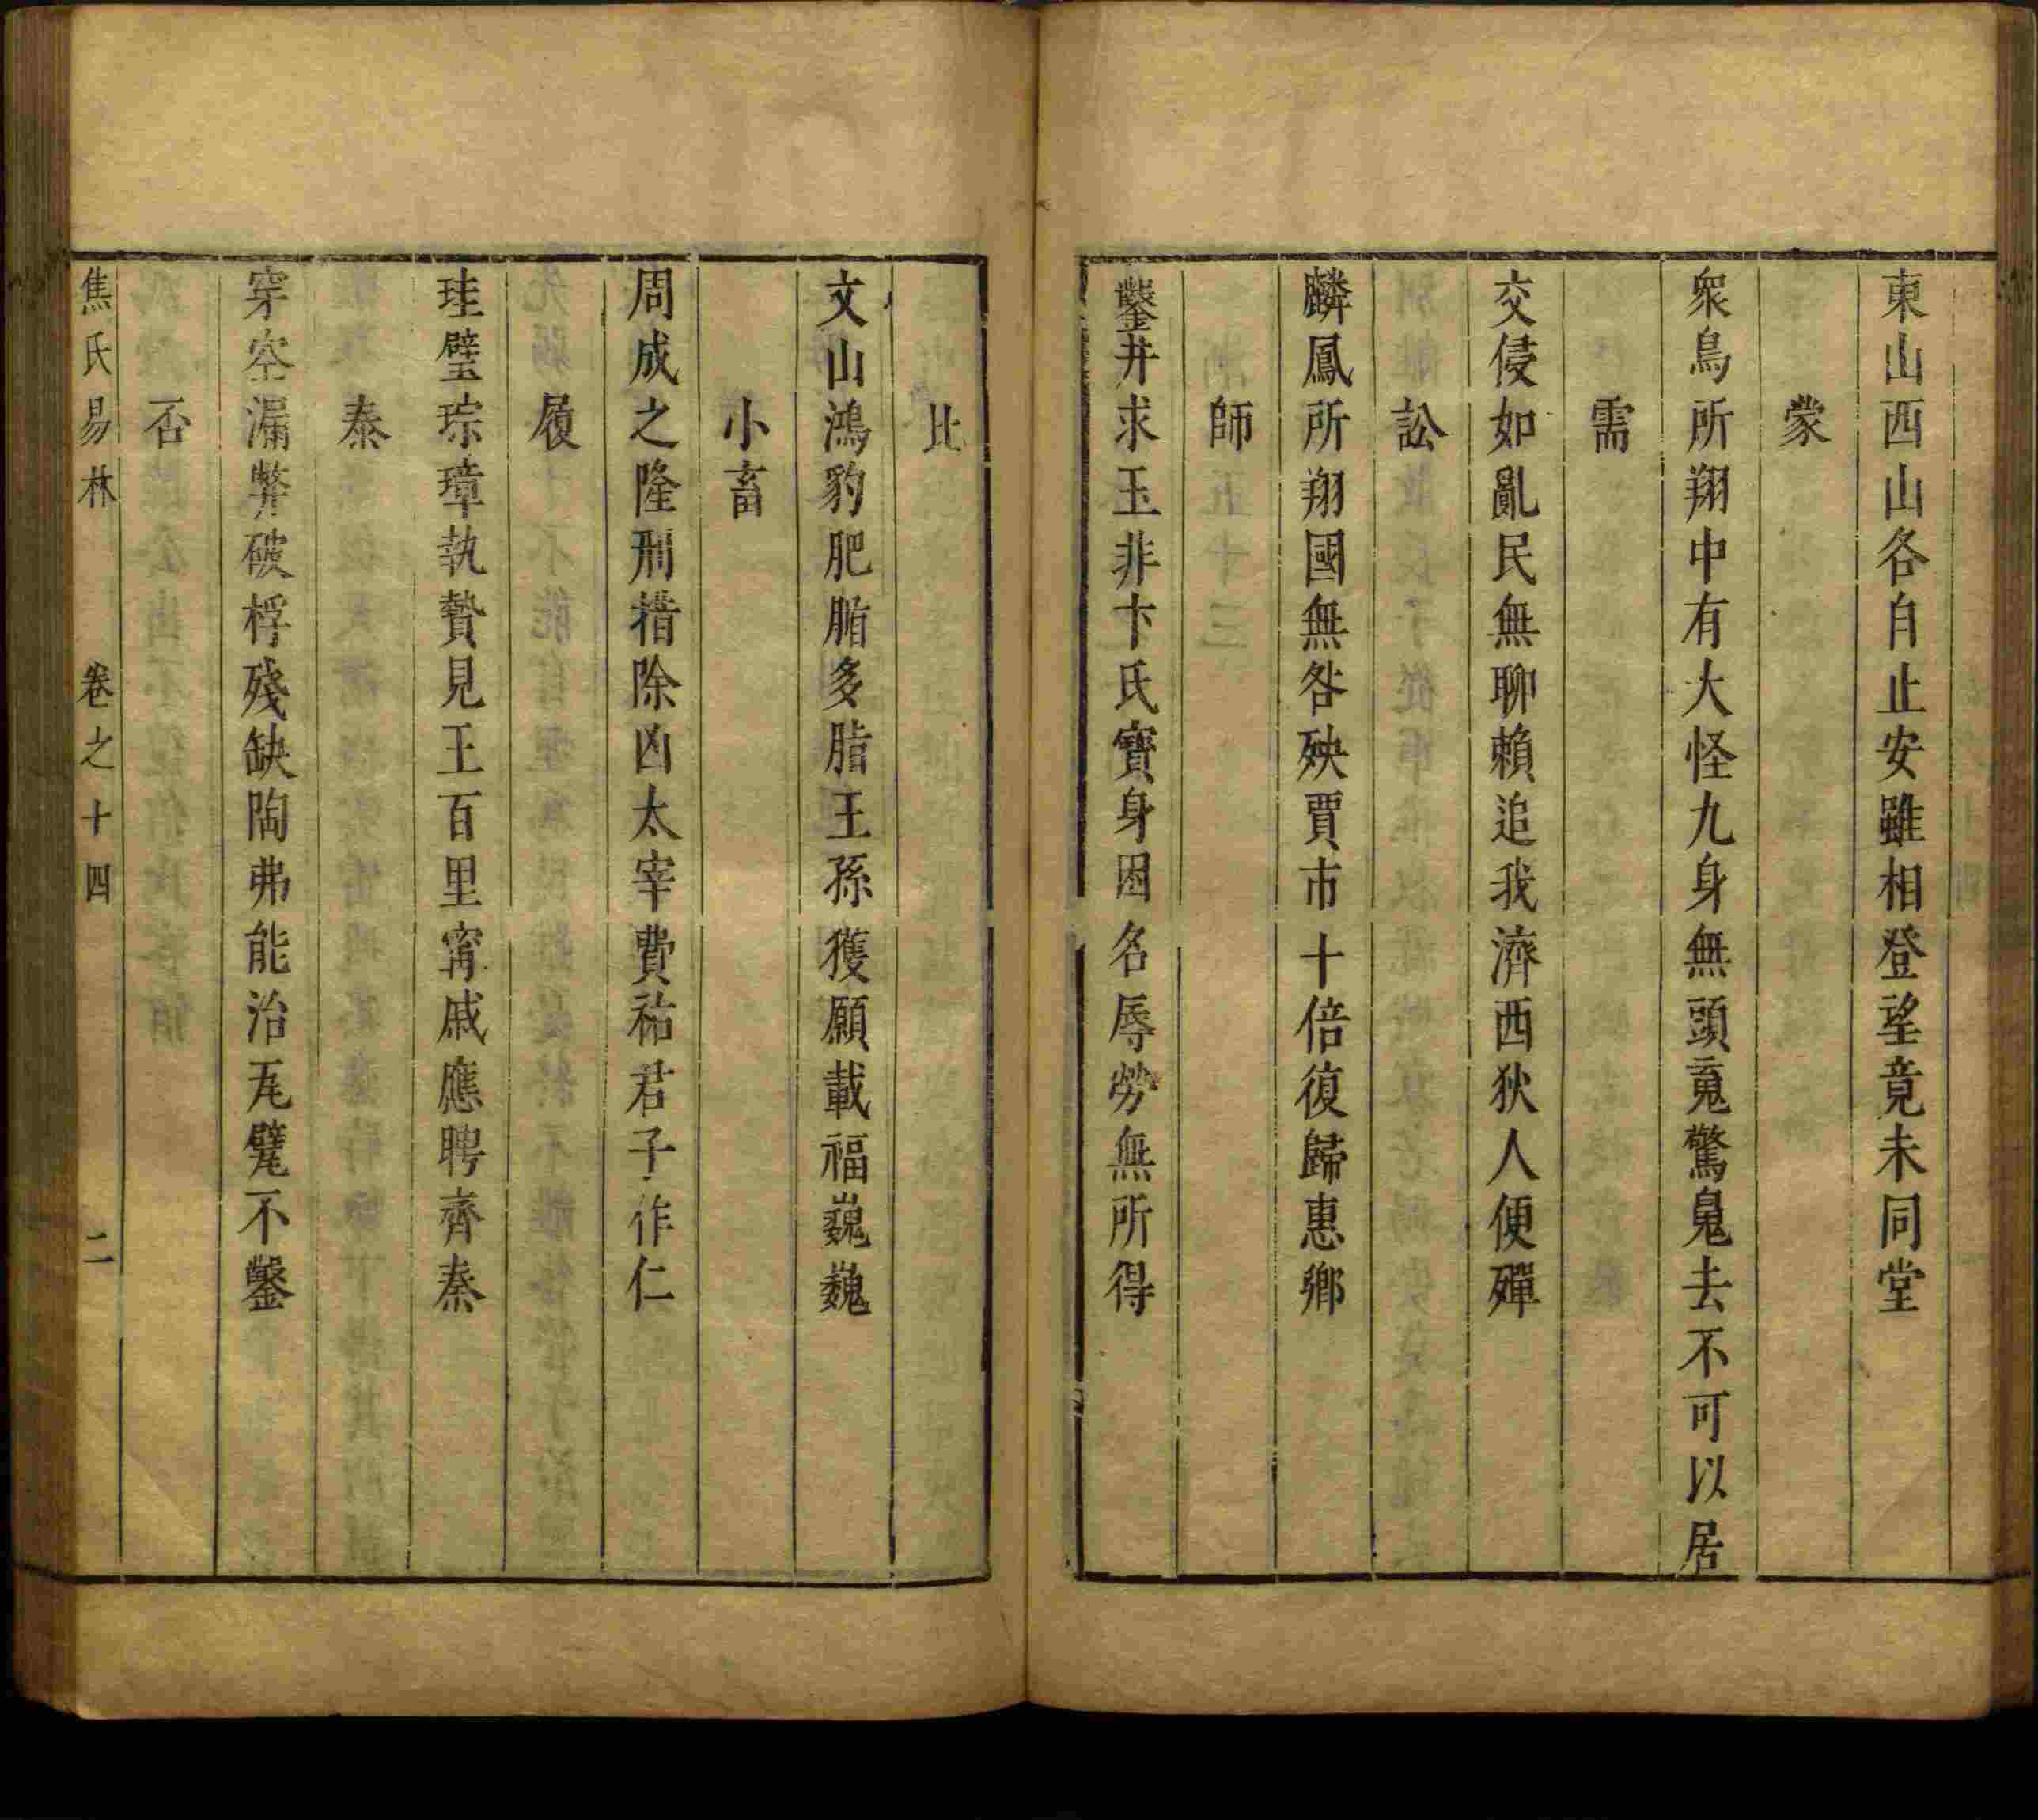 東山西山各自止安雖相登望竟未同堂
蒙
衆鳥所翔中有大怪九身無頭䰟驚鬼去不可以居
需
交侵如亂民無聊賴追我濟西狄人便殫
訟
麟鳳所翔國無咎殃賈市十倍復歸惠鄉
師
鑿井求玉非卞氏寶身困名辱勞無所得
比
文山鴻豹肥腯多脂王孫獲願載福巍巍
小畜
周成之隆刑措除凶太宰費祐君子作仁
履
珪璧琮璋執贄見王百里甯戚應聘齊秦
泰
穿空漏弊破桴殘缺陶弗能治瓦甓不鑿
否
焦氏易林 卷之十四 二